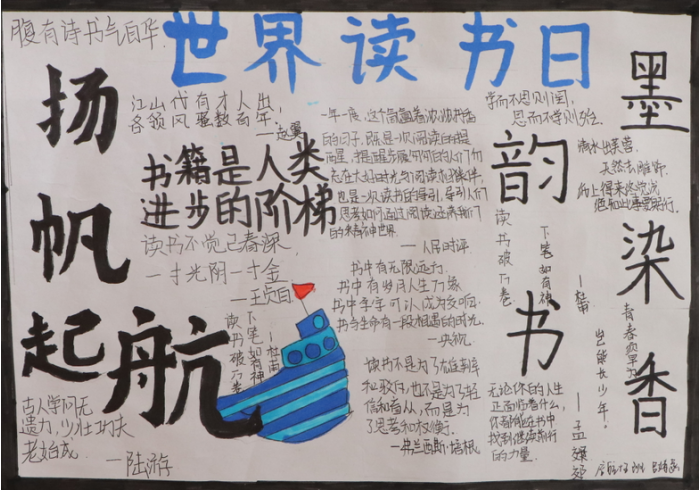 腹有诗书气自华
世界读书日
扬帆起航
江山代有才人出,
各领风骚数百年
—赵翼
书籍是人类
进步的阶梯
读书不觉已春深,
一寸光阴一寸金
—王贞白
读书破万卷
下笔如有神
—杜甫
古人学问无
遗力,少壮工夫
老始成
—陆游
一年一度,这个氤氲着浓浓书香
的日子,既是一次阅读的提
也是一次读书的导引,导引人们
思考如何通过阅读
的精神世界
—人民时评
书中有无限远方.
书中有岁月人生
书中字字可
书与生命有一段相遇的时光.
—央视
读书不是为了
和驳斥,也不是为了轻
信和盲从,而是为
了思考和权衡.
—弗兰西斯·培根
学而不思则罔,
思而不学则殆.
韵书
读书破万卷
下笔如有神
—杜甫
清水出芙蓉.
天然去雕饰.
纸上得来终觉浅
绝知此事要躬行.
墨染香
青春
出
少年.
—孟郊
无论你的人生
正面临着什么,
你都能在书中
找到继续前行
的力量.